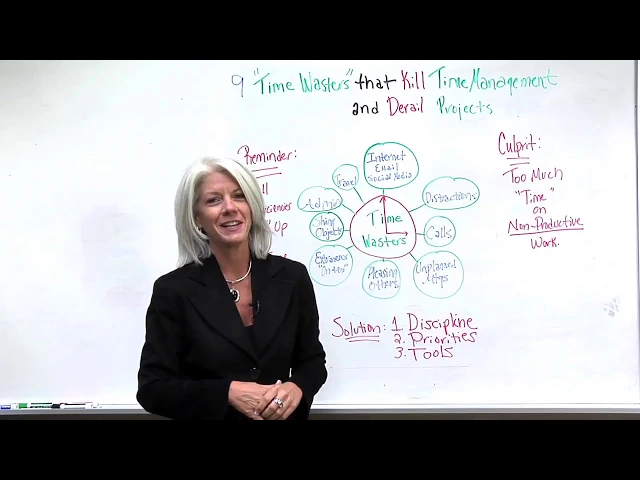 9 "Time Wasters" that Kill Time Management
and Derail Projects
Reminder:
Up
Internet
Email
Social Media
Travel
Admin
Shiny
Objects
Distractions
Calls
Time
Wasters
Pleasing
Others
Unplanned
Solution: 1. Discipline
2. Priorities
3. Tools
Culprit:
Too Much
"Time"
on
Non-Productive
Work.